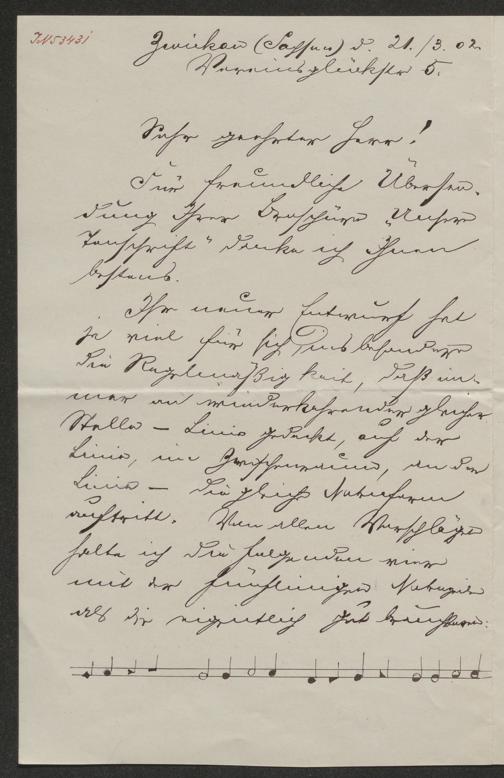 IN 53431
Zwickau (Sachsen) d. 21./3. 02.
Vereinsglückstr 5.
Sehr geehrter Herr!
Für freundliche Übersen-
dung Ihrer Broschüre „Unsere
Tonschrift“ danke ich Ihnen
bestens.
Ihr neuer Entwurf hat
ja viel für sich, insbesondere
die Regelmäßigkeit, daß im-
mer an wiederkehrender gleicher
Stelle – Linie gedeckt, auf der
Linie, im Zwischenraume, an der
Linie – die gleiche Notenform
auftritt. Von allen Vorschlägen
halte ich die folgenden vier
mit der fünflinigen
als die eigentlich gut brauchbaren: